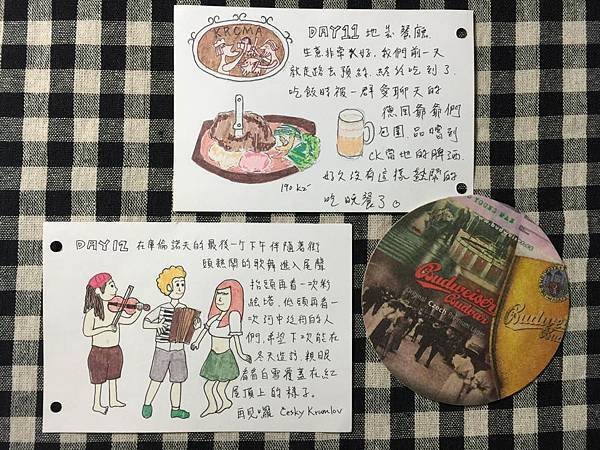 KROMA
DAY11 地窖餐廳
生意非常火好,我們前一天
就走路去預約,終於吃到了.
吃飯時被一群愛聊天的
德國爺爺們
包圍,品嚐到
CK當地的脾酒.
好久沒有這樣熱鬧的
吃晚餐了。
190 Kč
DAY12 在庫倫諾夫的最後一個下午伴隨著街
頭熱鬧的歌舞進入尾聲
抬頭再看一次彩
繪塔,低頭再看一
次河中泛舟的人
們,希望下次能在
冬天造訪,親眼
看看白雪覆蓋在紅
屋頂上的樣子。
再見囉 Český Krumlov
Budweiser
Budvar
Czech
Budweiser